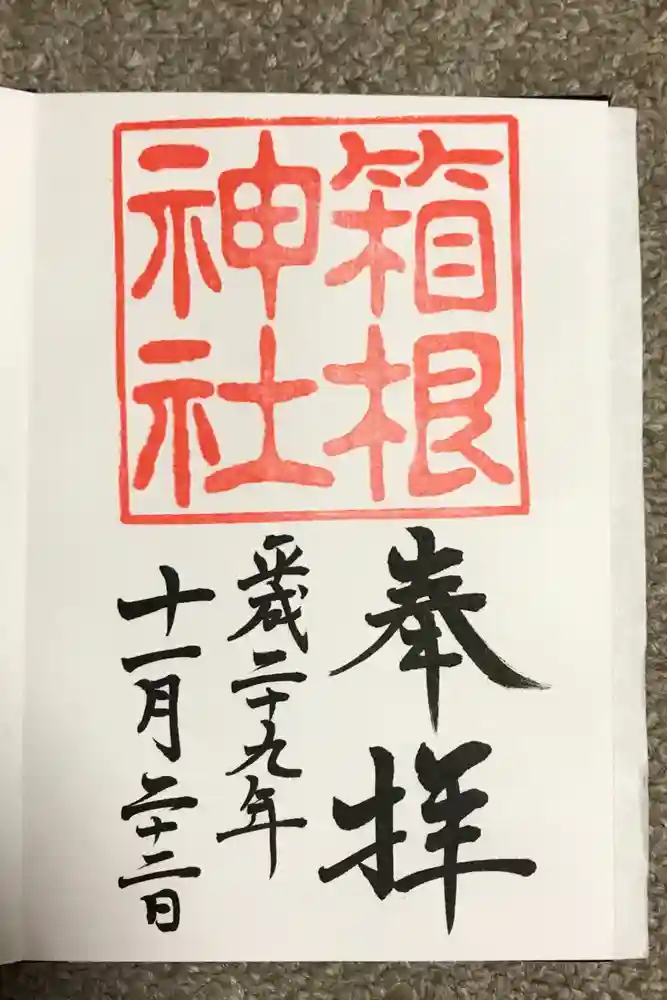 箱根
神社
奉拝
平成二十九年
十一月二十二日